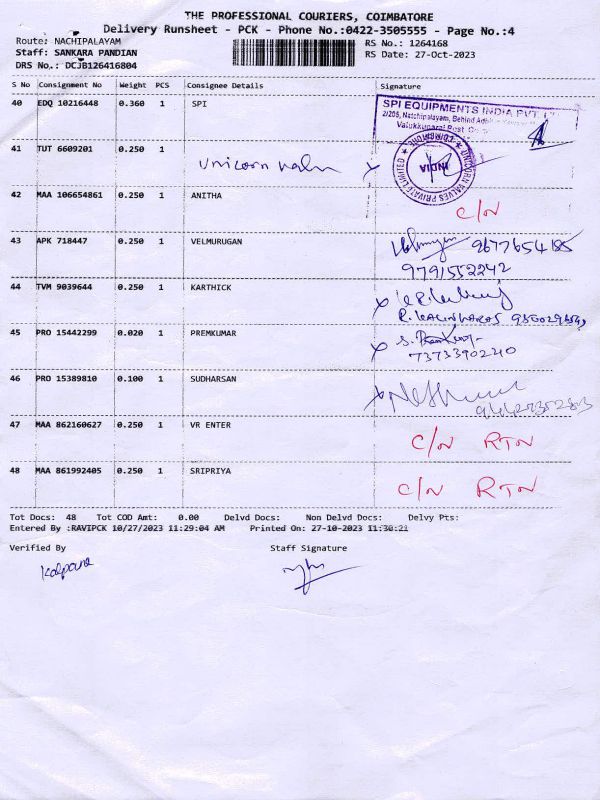 THE PROFESSIONAL COURIERS, COIMBATORE
Delivery Runsheet - PCK - Phone No.:0422-3505555 - Page No.:4
Route: NACHIPALAYAM RS No.: 1264168
Staff: SANKARA PANDIAN RS Date: 27-Oct-2023
DRS No.: DCJB126416804
S No Consignment No Weight PCS Consignee Details Signature
40 EDQ 10216448 0.360 1 SPI
SPI EQUIPMENTS INDIA PVT. LTD
2/205, Natchipalayam, Behind
Post
41 TUT 6609201 0.250 1 Unicorn valve
UNICORN VALVES PRIVATE LIMITED ★ COIMBATORE ★
INDIA
42 MAA 106654861 0.250 1 ANITHA C/N
43 APK 718447 0.250 1 VELMURUGAN 9677654185
9791552242
44 TVM 9039644 0.250 1 KARTHICK
45 PRO 15442299 0.020 1 PREMKUMAR
7373390240
46 PRO 15389810 0.100 1 SUDHARSAN
47 MAA 862160627 0.250 1 VR ENTER C/N RTN
48 MAA 861992405 0.250 1 SRIPRIYA C/N RTN
Tot Docs: 48 Tot COD Amt: 0.00 Delvd Docs: Non Delvd Docs: Delvy Pts:
Entered By :RAVIPCK 10/27/2023 11:29:04 AM Printed On: 27-10-2023 11:30:21
Verified By Staff Signature
Kalpana